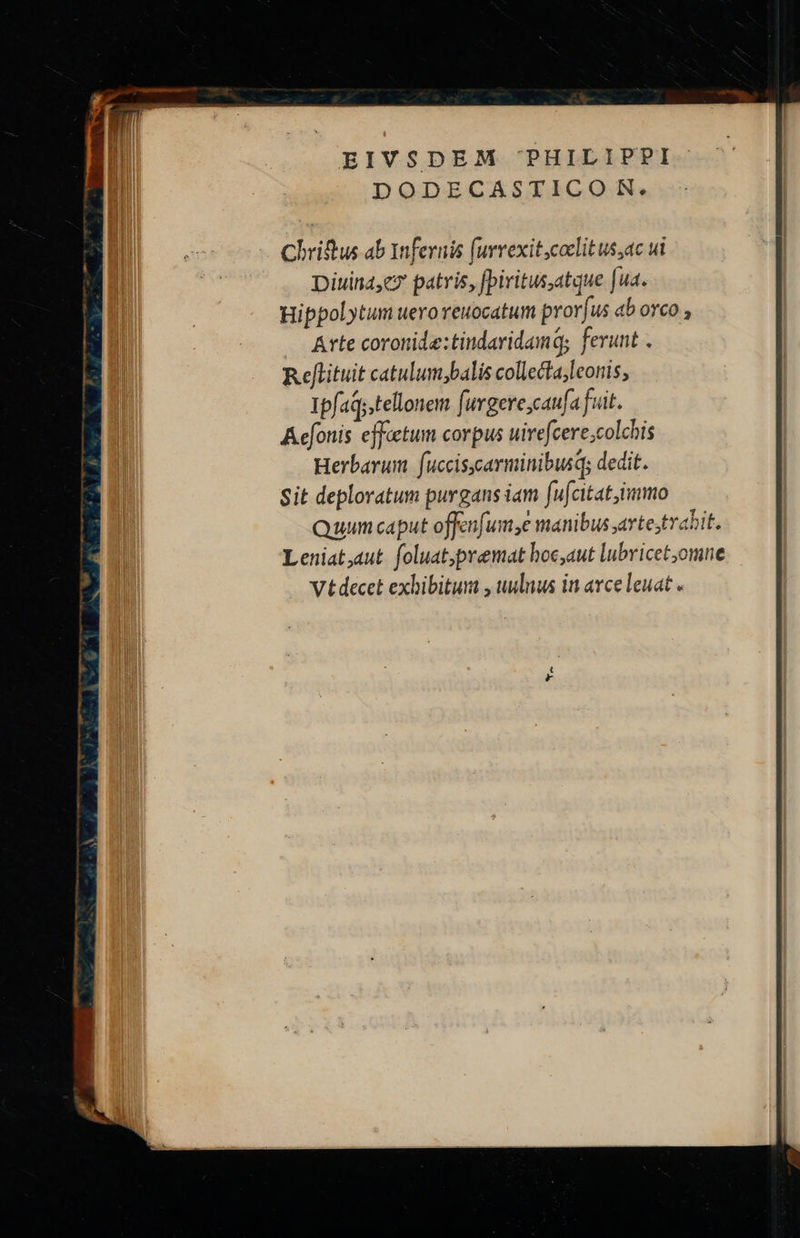 EIVSDEM PHILIPPI
DODECASTICON.
Chriſtus ab Infernis ſurrexit,cœlitus,ac ui
Diuina,& patris, ſpiritus,atque ſua.
Hippolytum uero reuocatum prorſus ab orco,
Arte coronidæ:tindaridamq; ferunt.
Reſtituit catulum,balis collecta,leonis,
Ipſaq;,tellonem ſurgere,cauſa fuit.
Aeſonis effœtum corpus uireſcere,colchis
Herbarum ſuccis,carminibusq; dedit.
Sit deploratum purgans iam ſuſcitat,immo
Quum caput offenſum,e manibus,arte,trahit.
Leniat,aut ſoluat,præmat hoc,aut lubricet,omne
Vt decet exhibitum, uulnus in arce leuat.